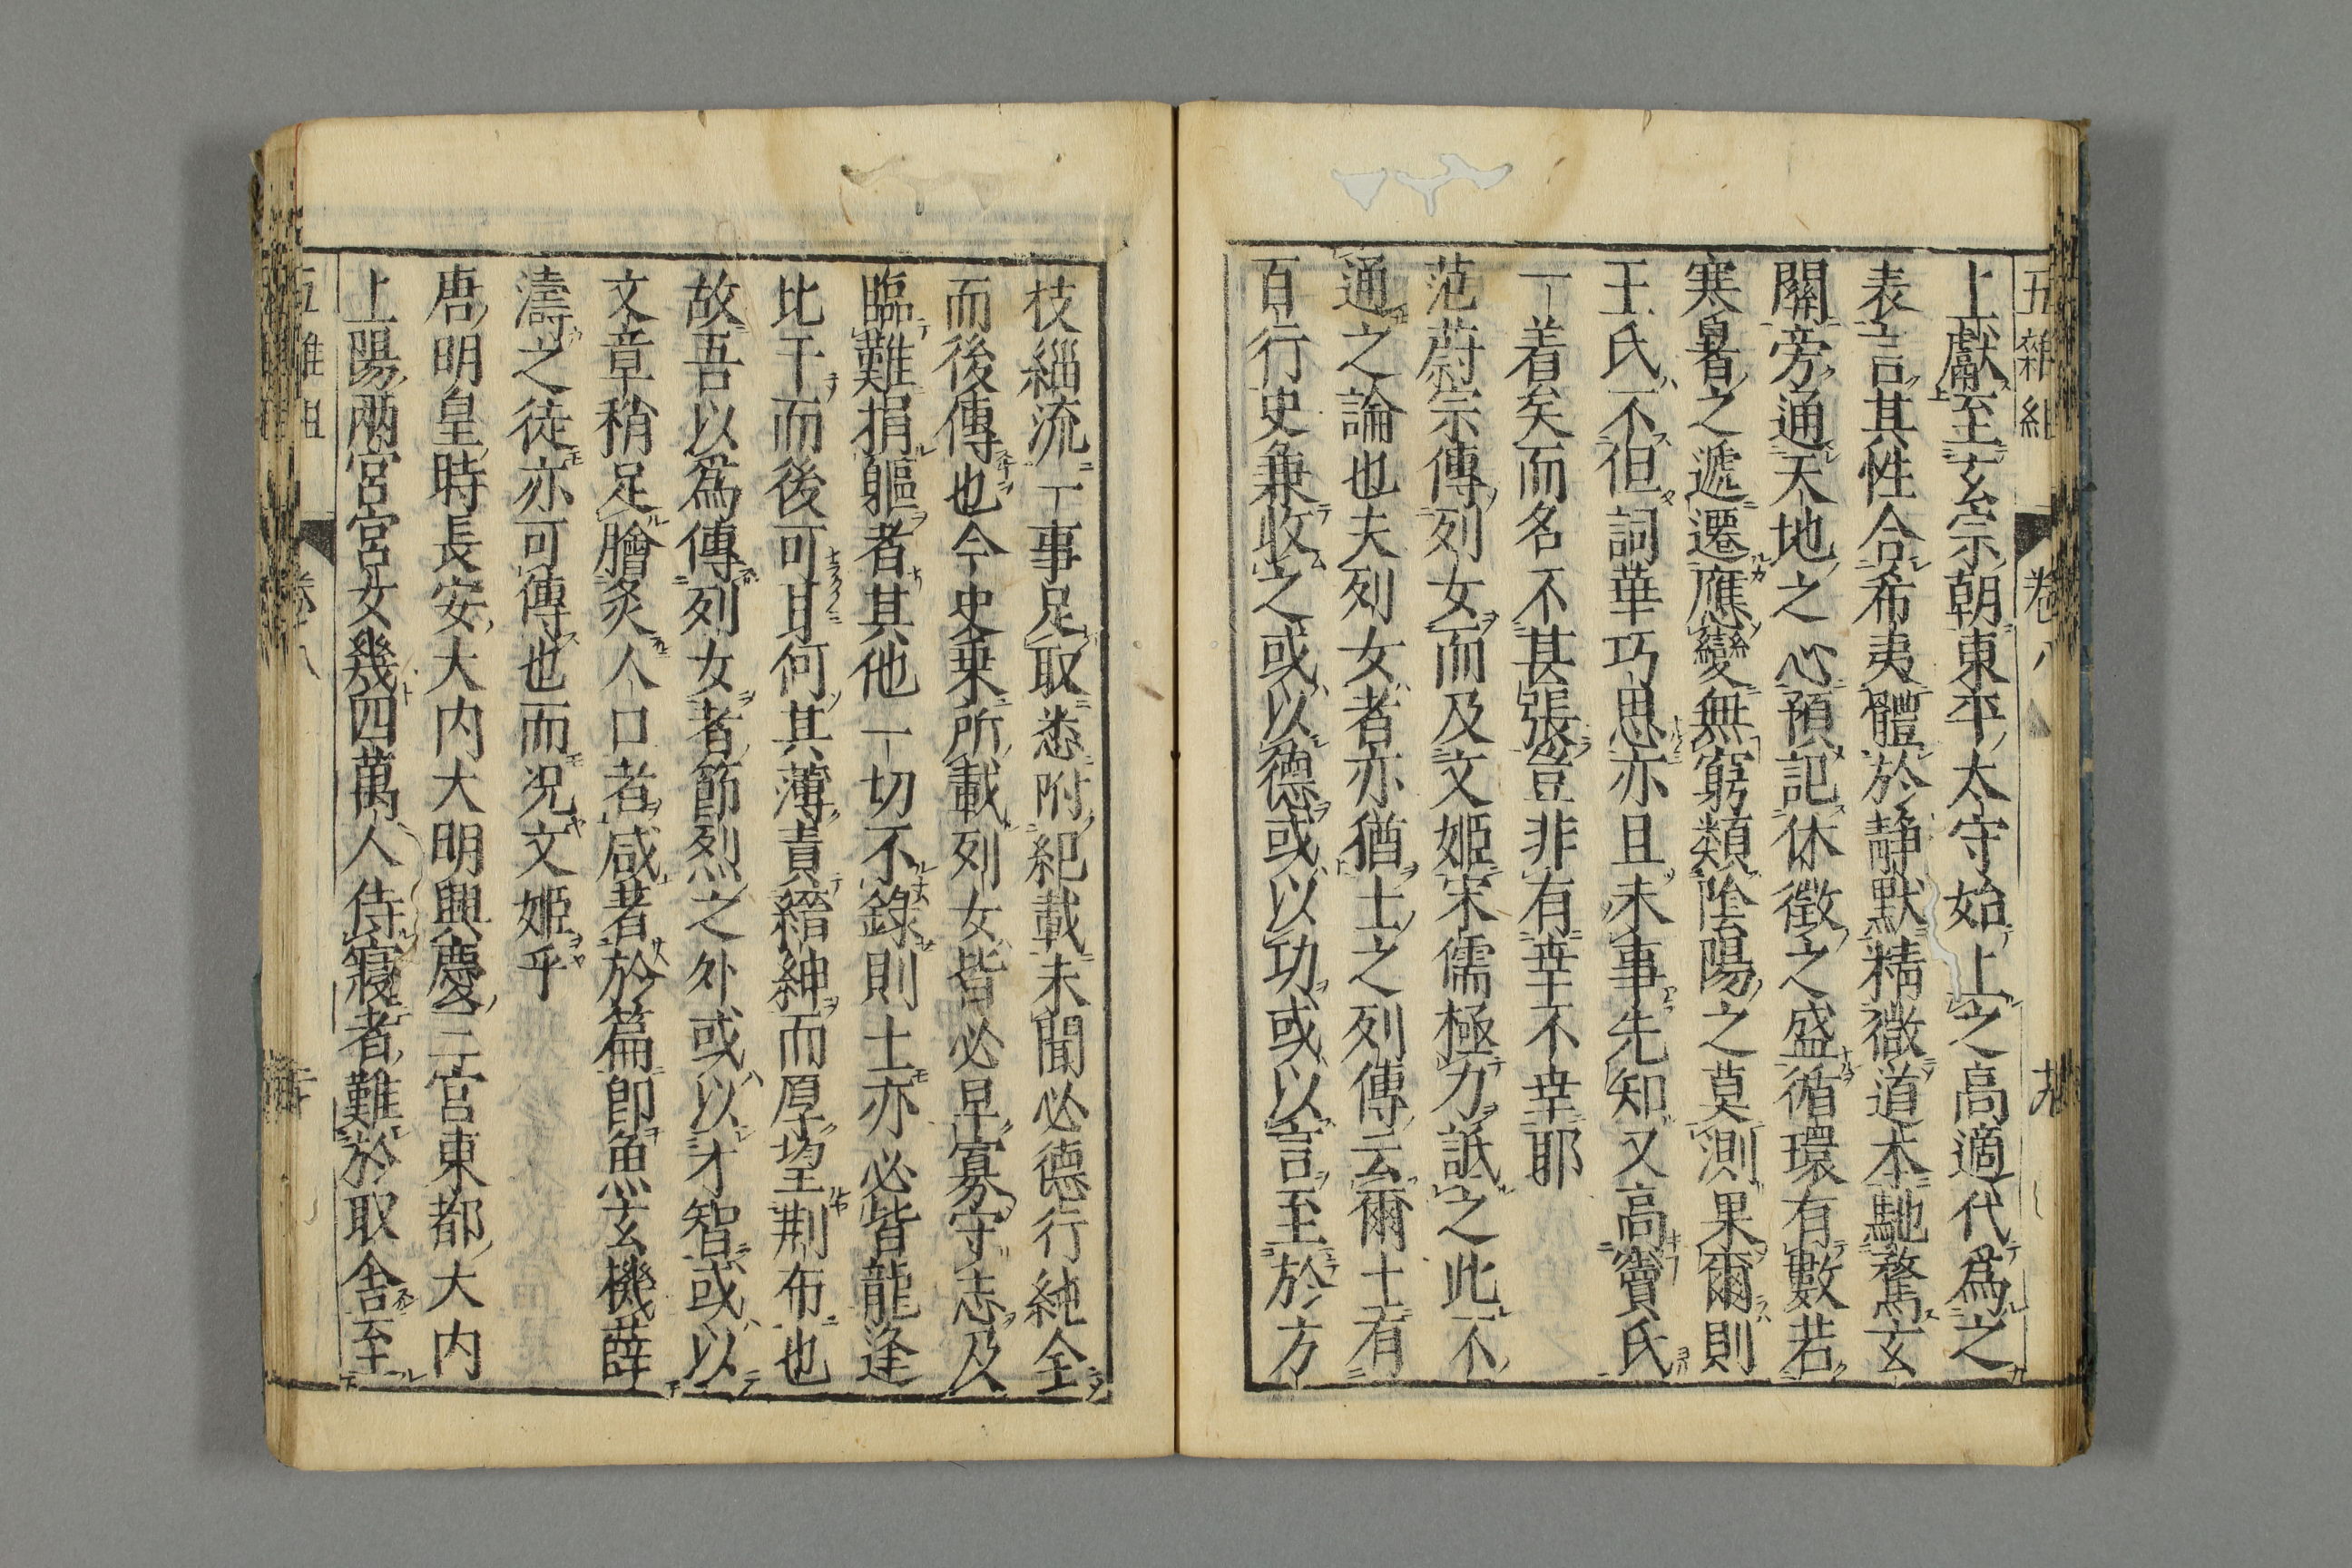 五雜組 卷八
上獻至玄宗朝東平太守始上之高適代爲之
表言其性合希夷體於静默精微道本馳騖玄
關旁通天地之心預記休徵之盛循環有數若
寒暑之遞遷應變無窮類陰陽之莫測果爾則
王氏不但詞華巧思亦且未事先知又高竇氏
一着矣而名不甚張豈非有幸不幸耶
范蔚宗傳列女而及文姬宋儒極力詆之此不
通之論也夫列女者亦猶士之列傳云爾士有
百行史兼收之或以德或以功或以言至於方
枝緇流一事足取悉附紀載未聞必德行純全
而後傳也今史乗所載列女皆必早寡守志及
臨難捐軀者其他一切不錄則士亦必皆龍逢
比干而後可耳何其薄責縉紳而厚望荆布也
故吾以爲傳列女者節烈之外或以才智或以
文章稍足膾炙人口者咸著於篇即魚玄機薛
濤之徒亦可傳也而况文姬乎
唐明皇時長安大内大明興慶三宮東都大内
上陽兩宮宮女幾四萬人侍寢者難於取舍至
五雜組 卷八